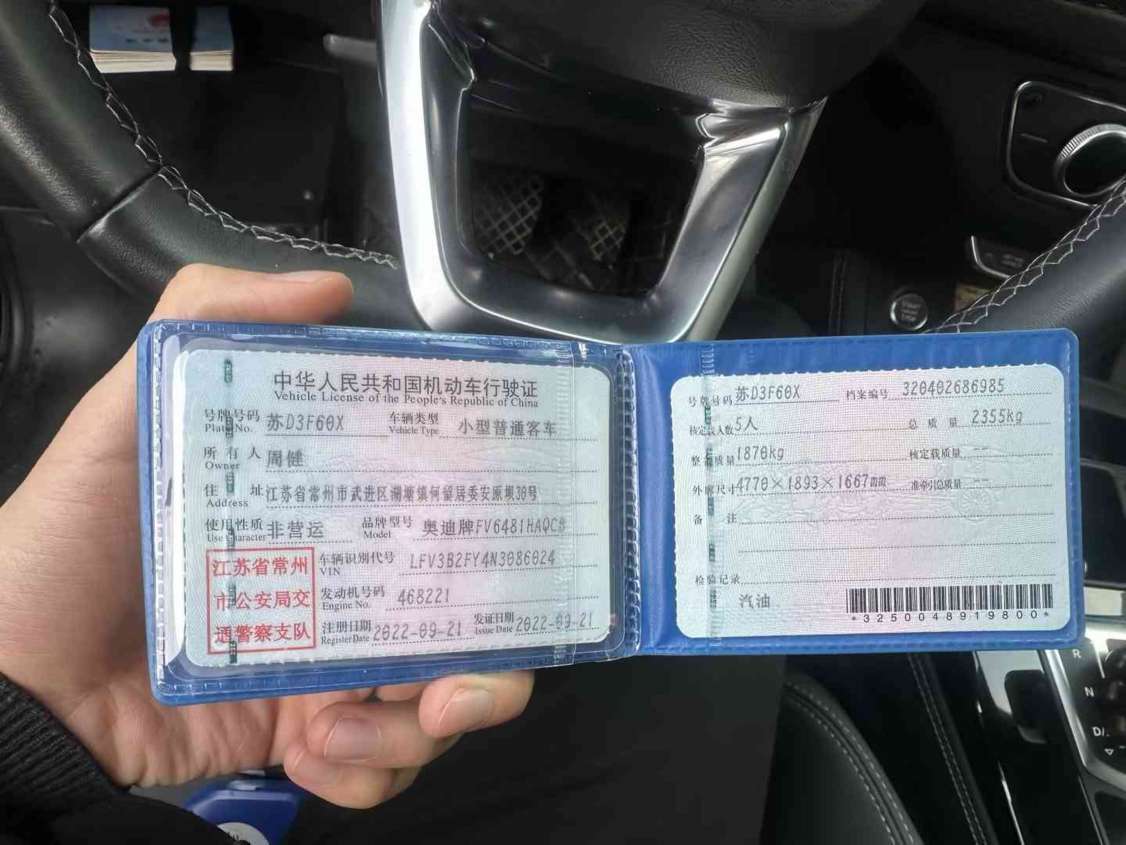 中华人民共和国机动车行驶证
Vehicle License of the People's Republic of China
号牌号码 苏D3F60X 车辆类型 小型普通客车
Plate No. Vehicle Type
所有人 周健
Owner
住址 江苏省常州市武进区湖塘镇何留居委安原坝30号
Address
使用性质 非营运 品牌型号 奥迪牌FV6481HAQCG
Use Character Model
江苏省常州
市公安局交
通警察支队
车辆识别代号 LFV3B2FY4N3086024
VIN
发动机号码 468221
Engine No.
注册日期 2022-09-21 发证日期 2022-09-21
Register Date Issue Date
号牌号码 苏D3F60X 档案编号 320402686985
核定载人数 5人 总质量 2355kg
整备质量 1870kg 核定载质量 --
外廓尺寸 4770×1893×1667mm 准牵引总质量 --
备注
检验记录
汽油
*3250048919800*
R
N
D/